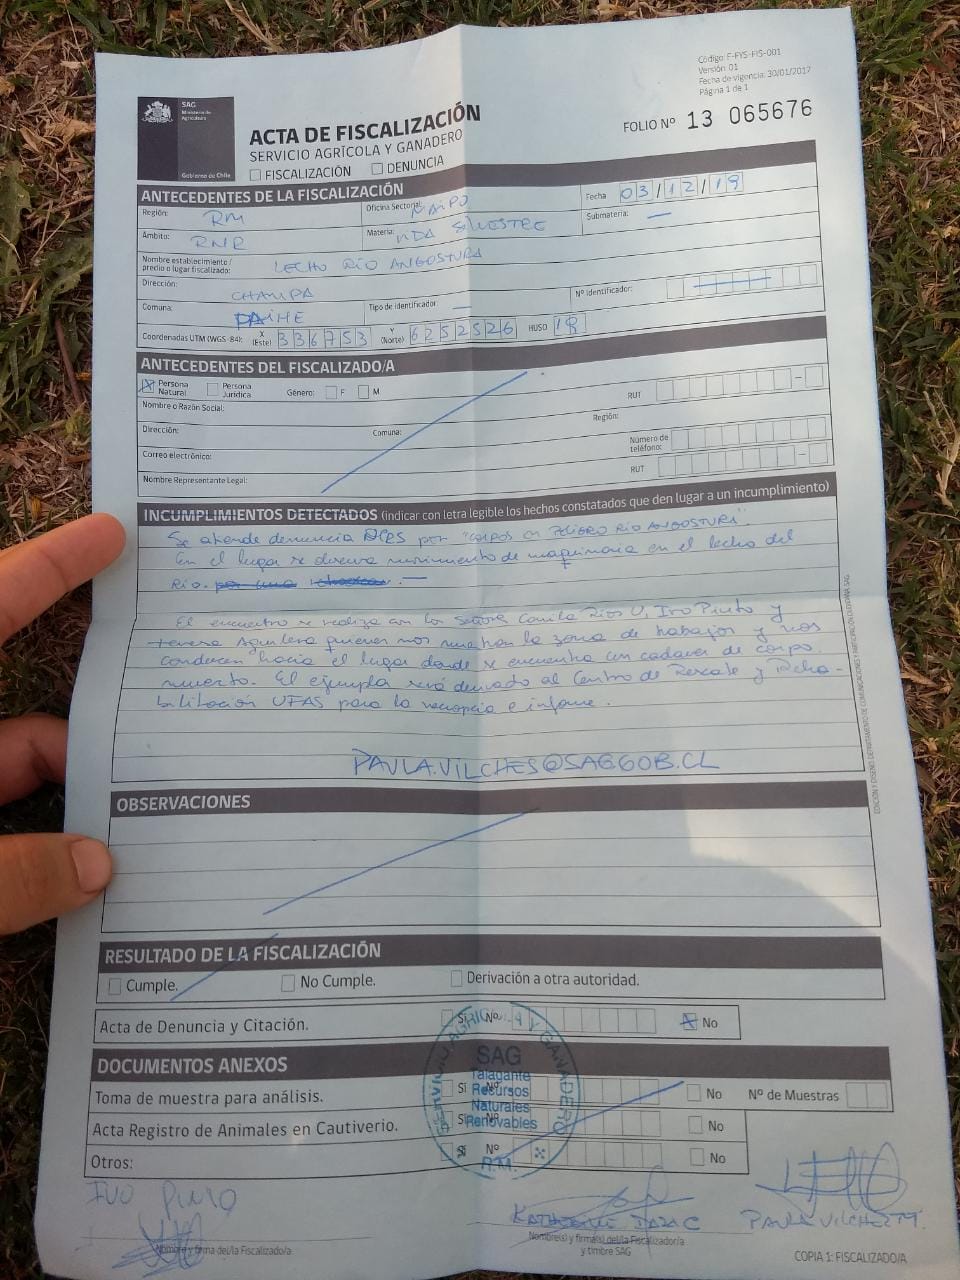 Código: F-FYS-FIS-001
Versión: 01
Fecha de vigencia: 30/01/2017
Página 1 de 1
SAG
Ministerio de Agricultura
Gobierno de Chile
ACTA DE FISCALIZACIÓN
SERVICIO AGRÍCOLA Y GANADERO
FISCALIZACIÓN DENUNCIA
FOLIO Nº 13 065676
ANTECEDENTES DE LA FISCALIZACIÓN
Región: RM Oficina Sectorial: MAIPO Fecha 03/12/19
Ámbito: RNR Materia: VIDA SILVESTRE Submateria: —
Nombre establecimiento / predio o lugar fiscalizado: LECHO RÍO ANGOSTURA
Dirección: CHAMPA
Comuna: PAINE Tipo de identificador: — Nº Identificador:
Coordenadas UTM (WGS-84): X (Este) 336753 Y (Norte) 6252526 HUSO 18
ANTECEDENTES DEL FISCALIZADO/A
Persona Natural Persona Jurídica Género: F M RUT
Nombre o Razón Social:
Dirección: Comuna: Región:
Correo electrónico: Número de teléfono:
Nombre Representante Legal: RUT
INCUMPLIMIENTOS DETECTADOS (indicar con letra legible los hechos constatados que den lugar a un incumplimiento)
Se atiende denuncia por "coipos en peligro Río ANGOSTURA".
En el lugar se observa movimiento de maquinaria en el lecho del
Río. por una
El encuentro se realiza con los señores Camila Ríos U, Ivo Pinto y
teresa Aguilera quienes nos muestran la zona de trabajos y nos
conducen hacia el lugar donde se encuentra un cadaver de coipo
muerto. El ejemplar será derivado al Centro de Rescate y Reha-
bilitación UFAS para la necropcia e informe.
PAULA.VILCHES@SAG.GOB.CL
OBSERVACIONES
RESULTADO DE LA FISCALIZACIÓN
Cumple. No Cumple. Derivación a otra autoridad.
Acta de Denuncia y Citación. Si Nº No
DOCUMENTOS ANEXOS
Toma de muestra para análisis. Si Nº No Nº de Muestras
Acta Registro de Animales en Cautiverio. Si Nº No
Otros: Si Nº No
SERVICIO AGRICOLA Y GANADERO
SAG
Talagante
Recursos
Naturales
Renovables
R.M.
IVO PINTO
PAULA VILCHES
Nombre y firma del/la Fiscalizado/a
Nombre(s) y firma(s) del/la Fiscalizador/a
y timbre SAG
COPIA 1: FISCALIZADO/A
EDICIÓN Y DISEÑO: DEPARTAMENTO DE COMUNICACIONES Y PARTICIPACIÓN CIUDADANA SAG